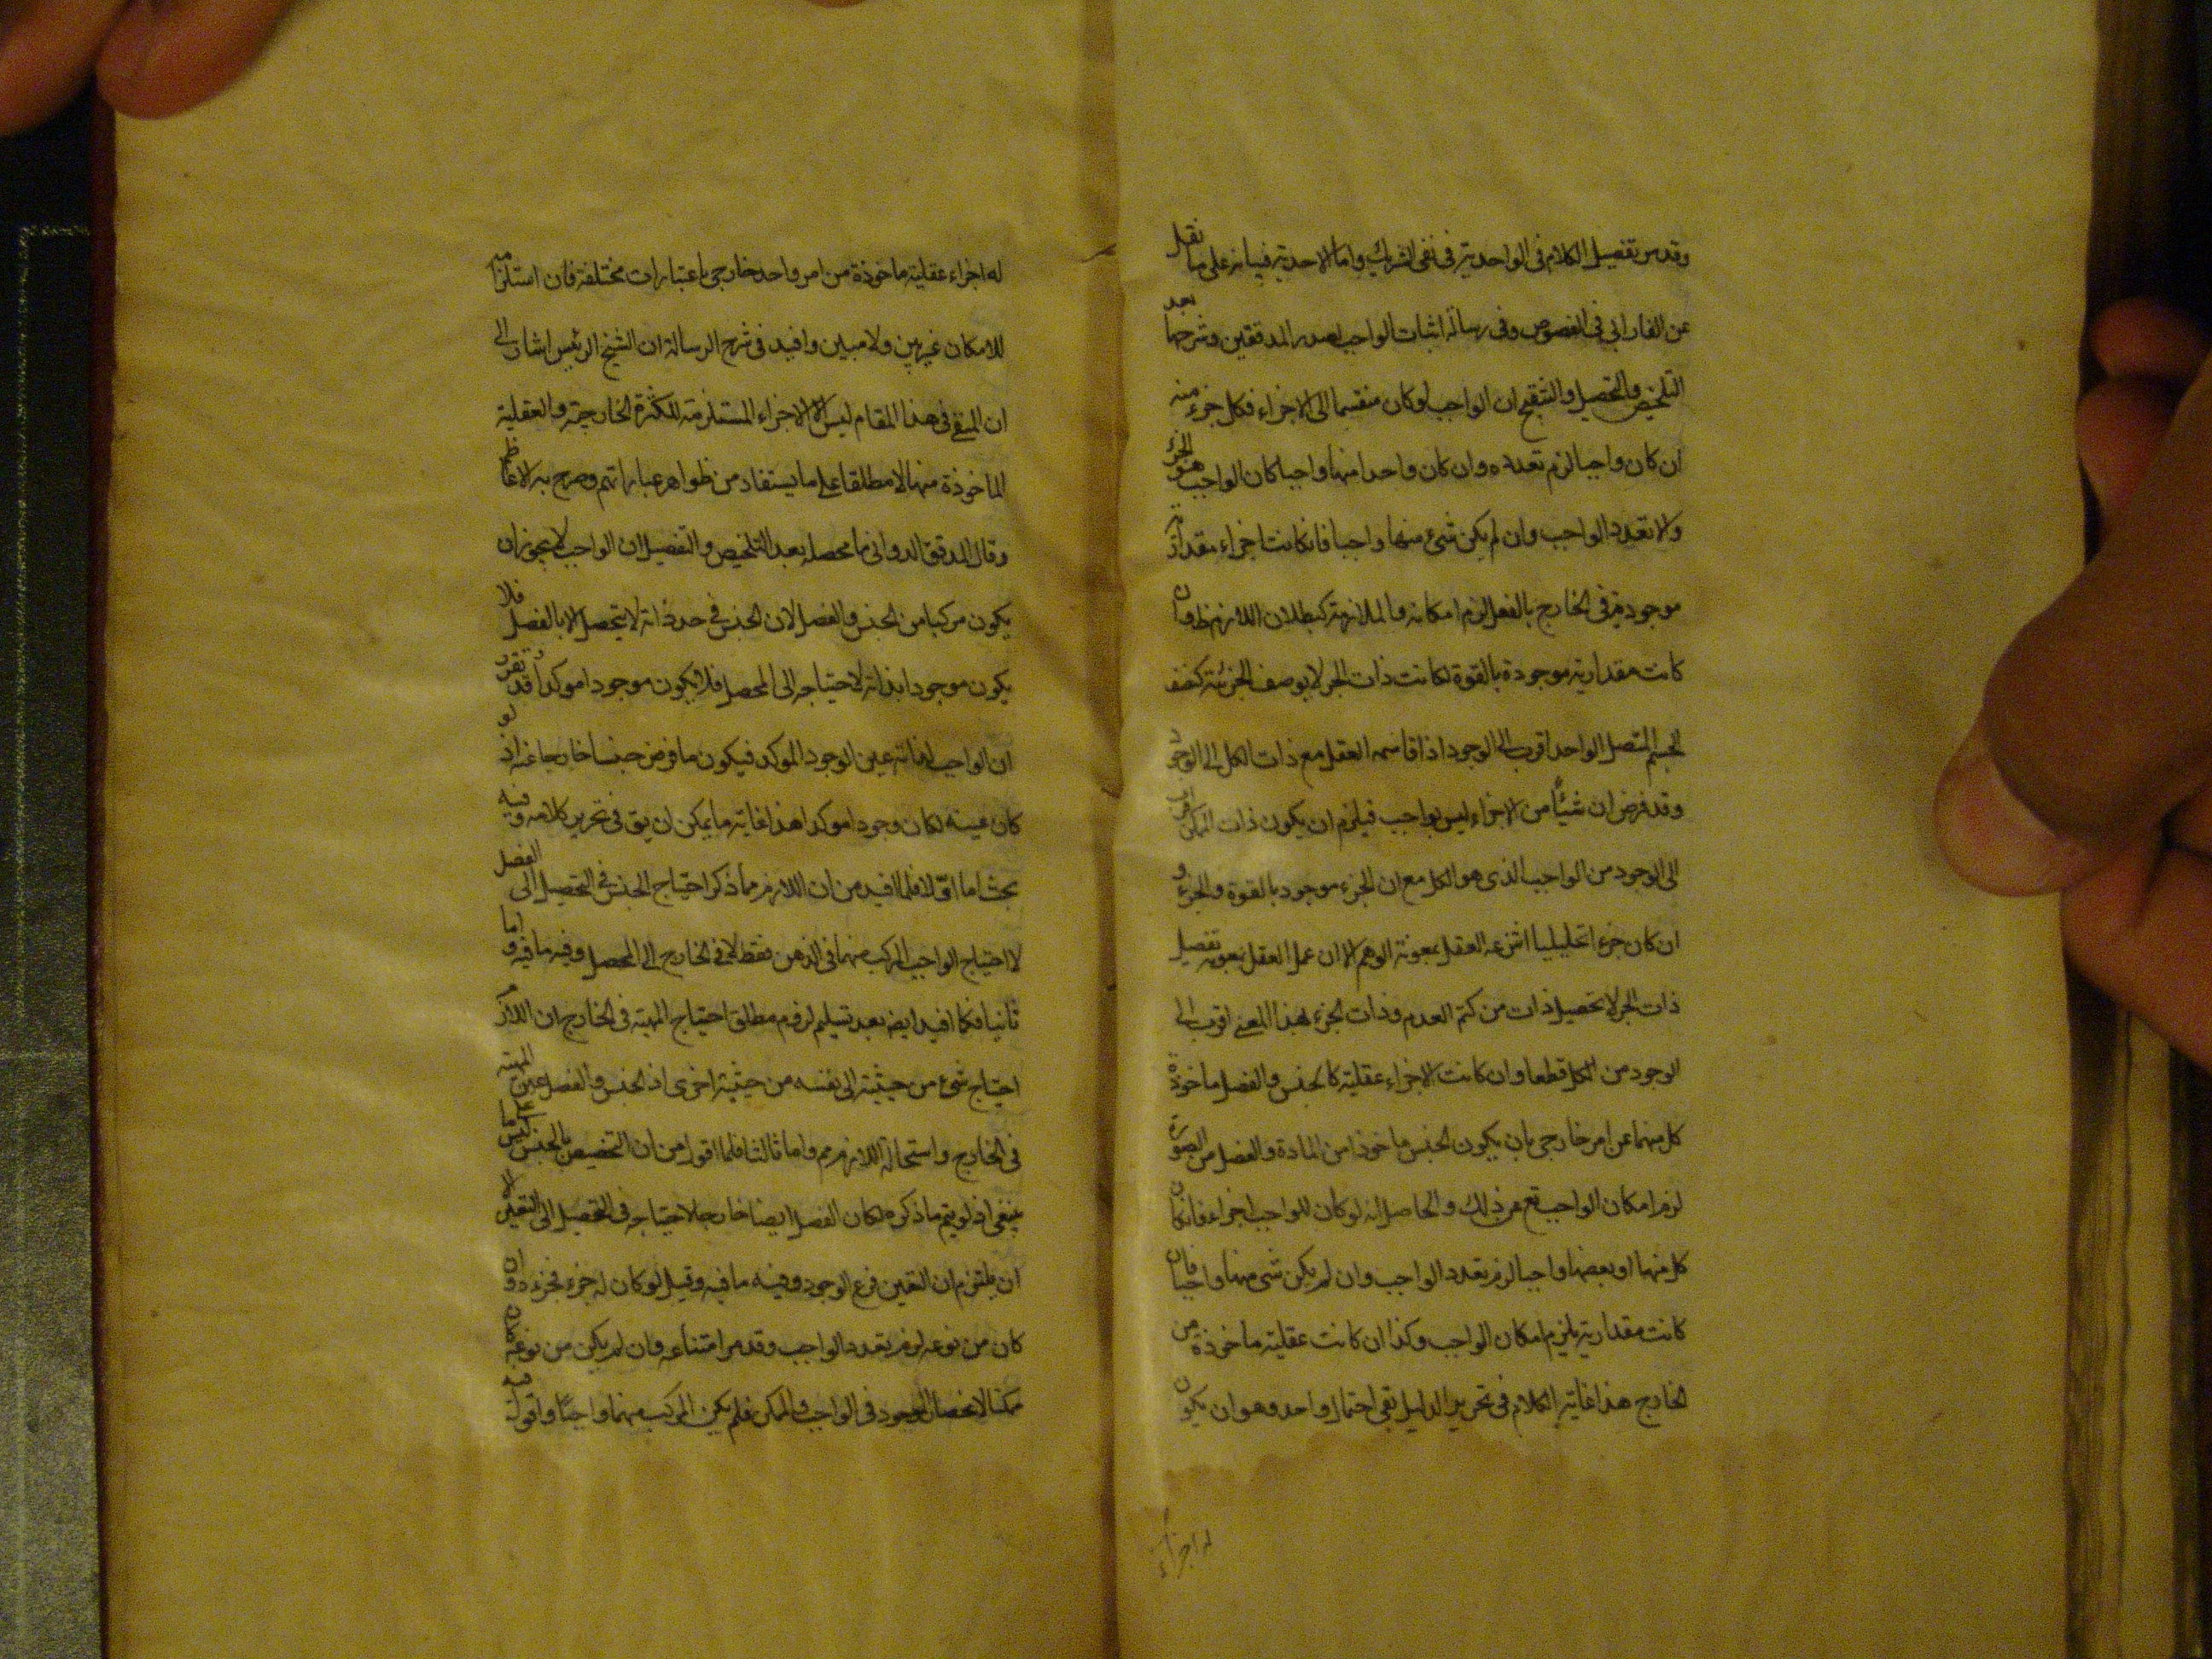 وقد مر تفصيل الكلام في الواحدية في نفي الشريك واما الاحدية فبيانه على ما نقل
عن الفارابي في الفصوص وفي رسالة اثبات الواجب لصدر المدققين وشرحها بعد
التلخيص والتحصيل والتنقيح ان الواجب لو كان منقسما الى الاجزاء فكل جزء منه
ان كان واجبا لزم تعدده وان كان واحدا منها واجبا كان الواجب هو الجزء
ولا تعدد الواجب وان لم يكن شئ منها واجبا فانكانت اجزاء مقدارية
موجودة في الخارج بالفعل لزم امكانه والملازمة كبطلان اللازم ظ وان
كانت مقدارية موجودة بالقوة لكانت ذات الجزء لا بوصف الجزئية كنصف
الجسم المتصل الواحد اقرب الى الوجود اذا قاسمه العقل مع ذات الكل الى الوجود
وقد فرض ان شيئا من الاجزاء ليس بواجب فيلزم ان يكون ذات الممكن اقرب
الى الوجود من الواجب الذي هو الكل مع ان الجزء موجود بالقوة والجزء و
ان كان جزءا تحليليا انتزعه العقل بمعونة الوهم الا ان عمل العقل بمعونته تفصيل
ذات الجزء لا تحصيل ذات من كتم العدم وذات الجزء بهذا المعنى اقرب الى
الوجود من الكل قطعا وان كانت الاجزاء عقلية كالجنس والفصل ماخوذة
كل منهما عن امر خارجي بان يكون الجنس ماخوذا من المادة والفصل من الصورة
لزم امكان الواجب تع عن ذلك والحاصل انه لو كان للواجب اجزاء فانكان
كل منها او بعضها واجبا لزم تعدد الواجب وان لم يكن شئ منها واجبا فان
كانت مقدارية يلزم امكان الواجب وكذا ان كانت عقلية ماخوذة من
الخارج هذا غاية الكلام في تحرير الدليل بقي احتمال واحد وهو ان يكون
له اجزاء
له اجزاء عقلية ماخوذة من امر واحد خارجي باعتبارات مختلفة فان استلزامه
للامكان غير بين ولا مبين وافيد في شرح الرسالة ان الشيخ الرئيس اشار الى
ان المنفي في هذا المقام ليس الا الاجزاء المستلزمة للكثرة الخارجية والعقلية
الماخوذة منها لا مطلقا على ما يستفاد من ظواهر عباراتهم وصرح به الاعاظم
وقال المدقق الدواني ما محصله بعد التلخيص والتفصيل ان الواجب لا يجوز ان
يكون مركبا من الجنس والفصل لان الجنس في حد ذاته لا يتحصل الا بالفصل فلا
يكون موجودا بذاته لاحتياجه الى المحصل فلا يكون موجودا موكدا وقد تقرر
ان الواجب لذاته عين الوجود الموكد فيكون ما فرض جنسا خارجا عنه اذ لو
كان عينه لكان وجودا موكدا هذا غاية ما يمكن ان يق في تحرير كلامه وفيه
بحث اما اولا فلما افيد من ان اللازم مما ذكر احتياج الجنس في التحصيل الى الفصل
لا احتياج الواجب المركب منهما في الذهن فقط لا في الخارج الى المحصل وفيه ما فيه و اما
ثانيا فكما افيد ايضا بعد تسليم لزوم مطلق احتياج المهية في الخارج ان اللازم
احتياج شئ من حيثية الى نفسه من حيثية اخرى اذ الجنس والفصل عين المهية
في الخارج واستحالة اللازم مم واما ثالثا فلما اقول من ان التخصيص بالجنس ليس على ما
ينبغي اذ لو يتم ما ذكره لكان الفصل ايضا خارجا لاحتياجه في التحصيل الى التعين الا
ان يلتزم ان التعين فرع الوجود وفيه ما فيه وقيل لو كان له جزء فجزءه ان
كان من نوعه لزم تعدد الواجب وقد مر امتناعه وان لم يكن من نوعه كان
ممكنا لانحصار الوجود في الواجب والممكن فلم يكن المركب منهما واجبا واقول فيه